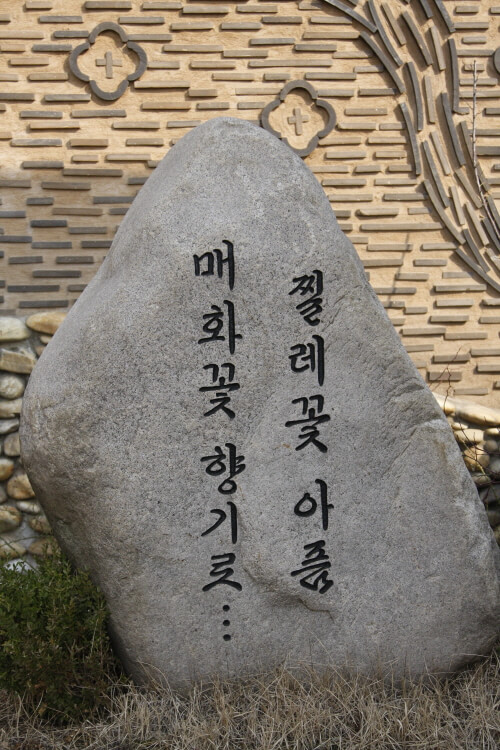 찔레꽃 아픔
매화꽃 향기로...